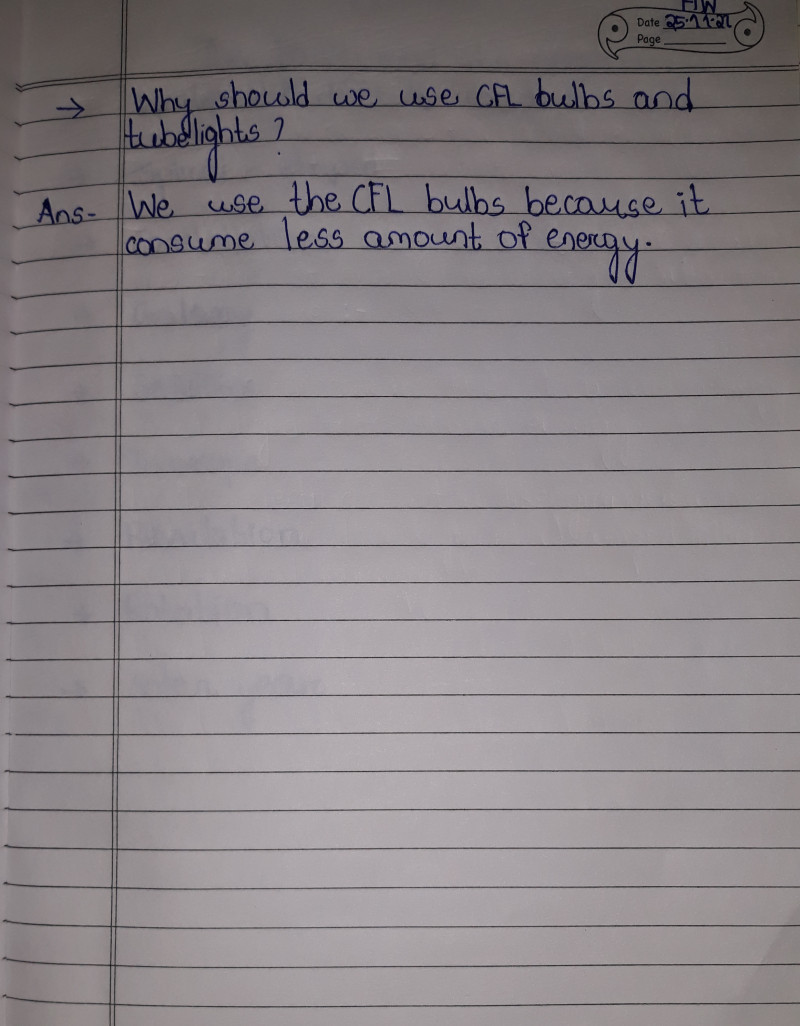 HW
Date 25.11.21
Page
→ Why should we use CFL bulbs and
tubelights?
Ans- We use the CFL bulbs because it
consume less amount of energy.